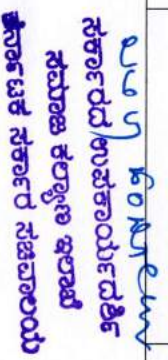 ಸರ್ಕಾರದ ಉಪಕಾರ್ಯದರ್ಶಿ
ಸಮಾಜ ಕಲ್ಯಾಣ ಇಲಾಖೆ
ಕರ್ನಾಟಕ ಸರ್ಕಾರ ಸಚಿವಾಲಯ